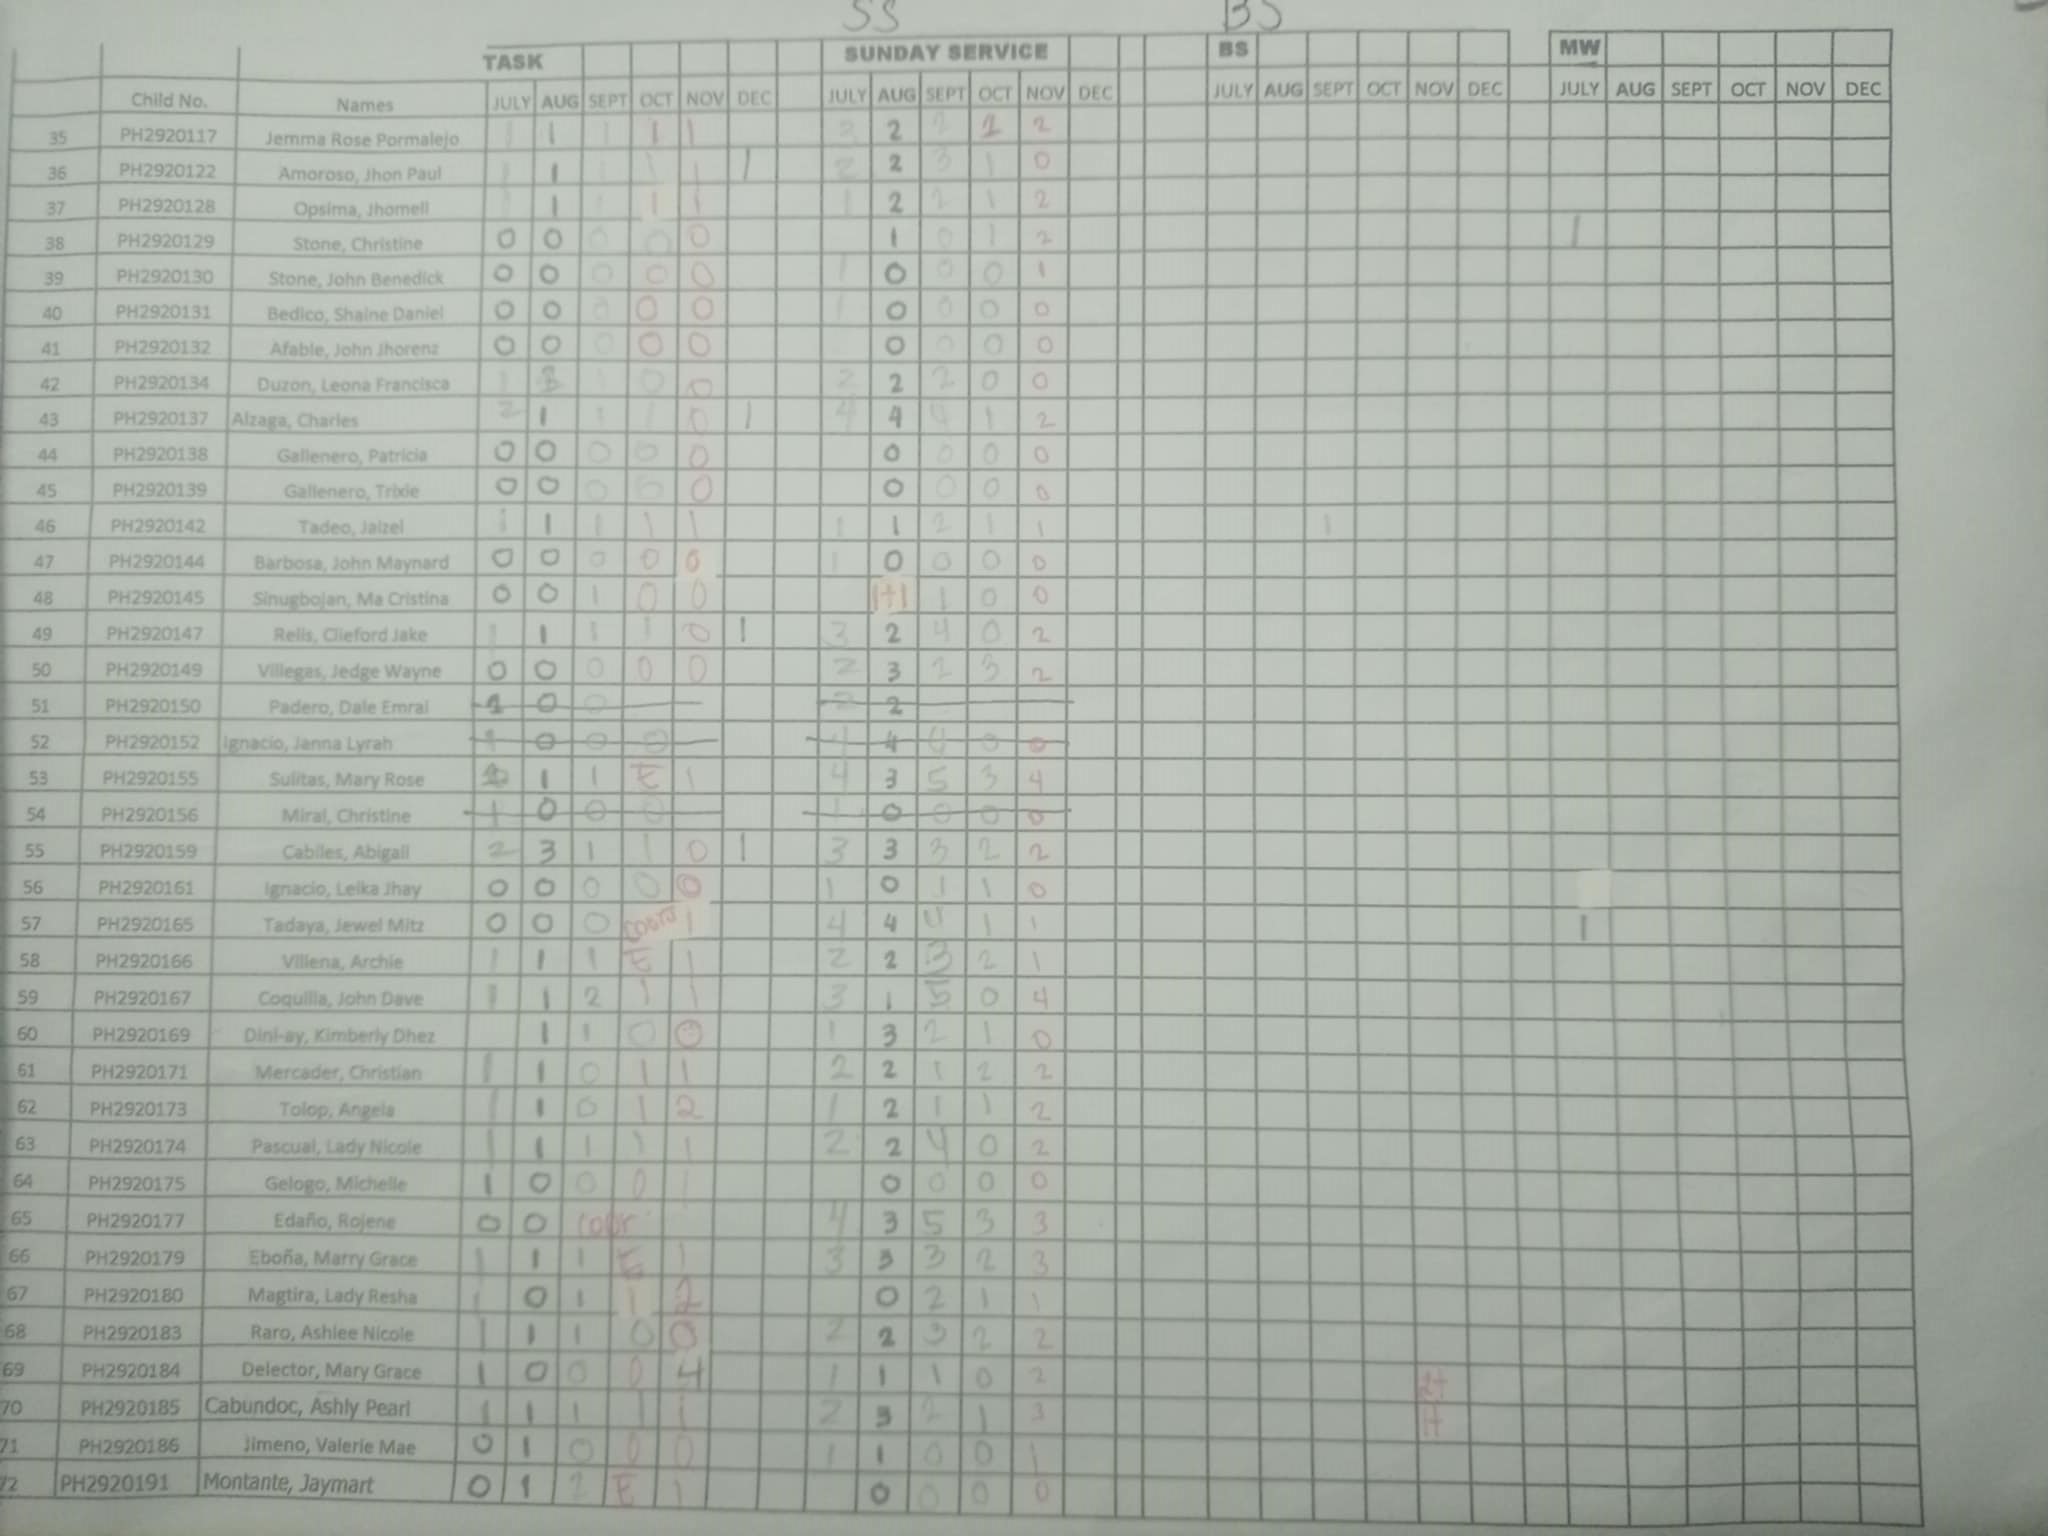 SS BS
TASK SUNDAY SERVICE BS MW
Child No. Names JULY AUG SEPT OCT NOV DEC JULY AUG SEPT OCT NOV DEC JULY AUG SEPT OCT NOV DEC JULY AUG SEPT OCT NOV DEC
35 PH2920117 Jemma Rose Pormalejo 1 1 1 1 1 2 2 2 2
36 PH2920122 Amoroso, Jhon Paul 1 1 1 1 1 1 2 2 3 1 0
37 PH2920128 Opsima, Jhomell 1 1 1 1 1 1 2 2 1 2
38 PH2920129 Stone, Christine 0 0 0 0 0 1 0 1 2 1
39 PH2920130 Stone, John Benedick 0 0 0 0 0 1 0 0 0 1
40 PH2920131 Bedico, Shaine Daniel 0 0 0 0 0 1 0 0 0 0
41 PH2920132 Afable, John Jhorenz 0 0 0 0 0 0 0 0 0
42 PH2920134 Duzon, Leona Francisca 1 3 1 0 0 2 2 2 0 0
43 PH2920137 Alzaga, Charles 2 1 1 1 0 1 4 4 4 1 2
44 PH2920138 Gallenero, Patricia 0 0 0 0 0 0 0 0 0
45 PH2920139 Gallenero, Trixie 0 0 0 0 0 0 0 0 0
46 PH2920142 Tadeo, Jaizel 1 1 1 1 1 1 1 2 1 1 1
47 PH2920144 Barbosa, John Maynard 0 0 0 0 0 1 0 0 0 0
48 PH2920145 Sinugbojan, Ma Cristina 0 0 1 0 0 1+1 1 0 0
49 PH2920147 Relis, Clieford Jake 1 1 1 1 0 1 3 2 4 0 2
50 PH2920149 Villegas, Jedge Wayne 0 0 0 0 0 2 3 2 3 2
51 PH2920150 Padero, Dale Emral 1 0 0 2 2
52 PH2920152 Ignacio, Janna Lyrah 1 0 0 0 4 4 4 0 0
53 PH2920155 Sulitas, Mary Rose 1 1 E 1 4 3 5 3 4
54 PH2920156 Miral, Christine 1 0 0 0 1 0 0 0 0
55 PH2920159 Cabiles, Abigail 2 3 1 1 0 1 3 3 3 2 2
56 PH2920161 Ignacio, Leika Jhay 0 0 0 0 0 1 0 1 1 0
57 PH2920165 Tadaya, Jewel Mitz 0 0 0 1 4 4 4 1 1 1
58 PH2920166 Villena, Archie 1 1 1 E 1 2 2 3 2 1
59 PH2920167 Coquilla, John Dave 1 1 2 1 1 3 1 5 0 4
60 PH2920169 Dini-ay, Kimberly Dhez 1 1 0 0 1 3 2 1 0
61 PH2920171 Mercader, Christian 1 1 0 1 1 2 2 1 2 2
62 PH2920173 Tolop, Angela 1 1 0 1 2 1 2 1 1 2
63 PH2920174 Pascual, Lady Nicole 1 1 1 1 1 2 2 4 0 2
64 PH2920175 Gelogo, Michelle 1 0 0 0 1 0 0 0 0
65 PH2920177 Edaño, Rojene 0 0 coor 4 3 5 3 3
66 PH2920179 Eboña, Marry Grace 1 1 1 E 1 3 3 3 2 3
67 PH2920180 Magtira, Lady Resha 1 0 1 1 2 0 2 1 1
68 PH2920183 Raro, Ashlee Nicole 1 1 1 0 0 2 2 3 2 2
69 PH2920184 Delector, Mary Grace 1 0 0 0 4 1 1 1 0 2
70 PH2920185 Cabundoc, Ashly Pearl 1 1 1 1 1 2 3 2 1 3
71 PH2920186 Jimeno, Valerie Mae 0 1 0 0 0 1 1 0 0 1
72 PH2920191 Montante, Jaymart 0 1 2 E 1 0 0 0 0